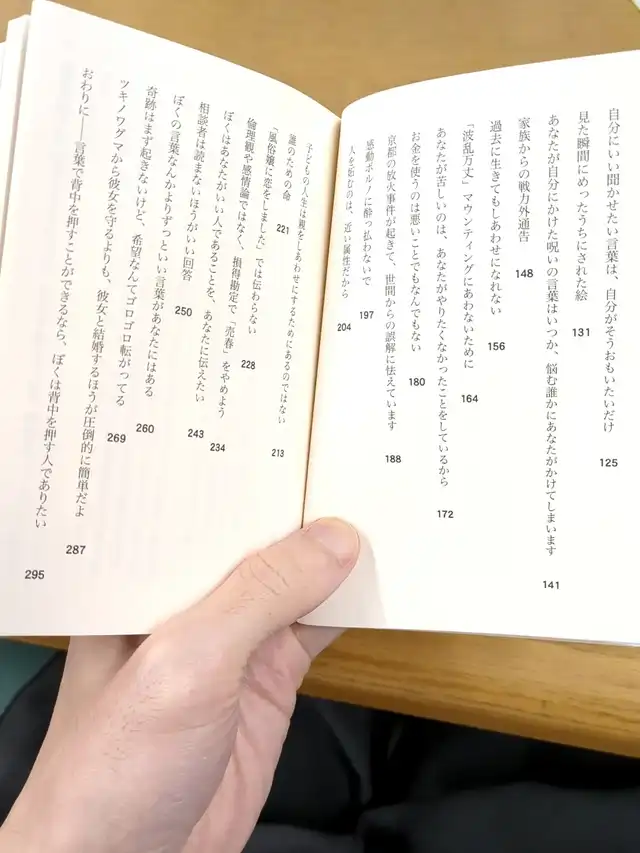 自分にいい聞かせたい言葉は、自分がそうおもいたいだけ 125
見た瞬間にめったうちにされた絵 131
あなたが自分にかけた呪いの言葉はいつか、悩む誰かにあなたがかけてしまいます 141
家族からの戦力外通告 148
過去に生きてもしあわせになれない 156
「波乱万丈」マウンティングにあわないために 164
あなたが苦しいのは、あなたがやりたくなかったことをしているから 172
お金を使うのは悪いことでもなんでもない 180
京都の放火事件が起きて、世間からの誤解に怯えています 188
感動ポルノに酔っ払わないで 197
人を妬むのは、近い属性だから 204
子どもの人生は親をしあわせにするためにあるのではない 213
誰のための命 221
「風俗嬢に恋をしました」では伝わらない 228
倫理観や感情論ではなく、損得勘定で「売春」をやめよう 234
ぼくはあなたがいい人であることを、あなたに伝えたい 243
相談者は読まないほうがいい回答 250
ぼくの言葉なんかよりずっといい言葉があなたにはある 260
奇跡はまず起きないけど、希望なんてゴロゴロ転がってる 269
ツキノワグマから彼女を守るよりも、彼女と結婚するほうが圧倒的に簡単だよ 287
おわりに──言葉で背中を押すことができるなら、ぼくは背中を押す人でありたい 295